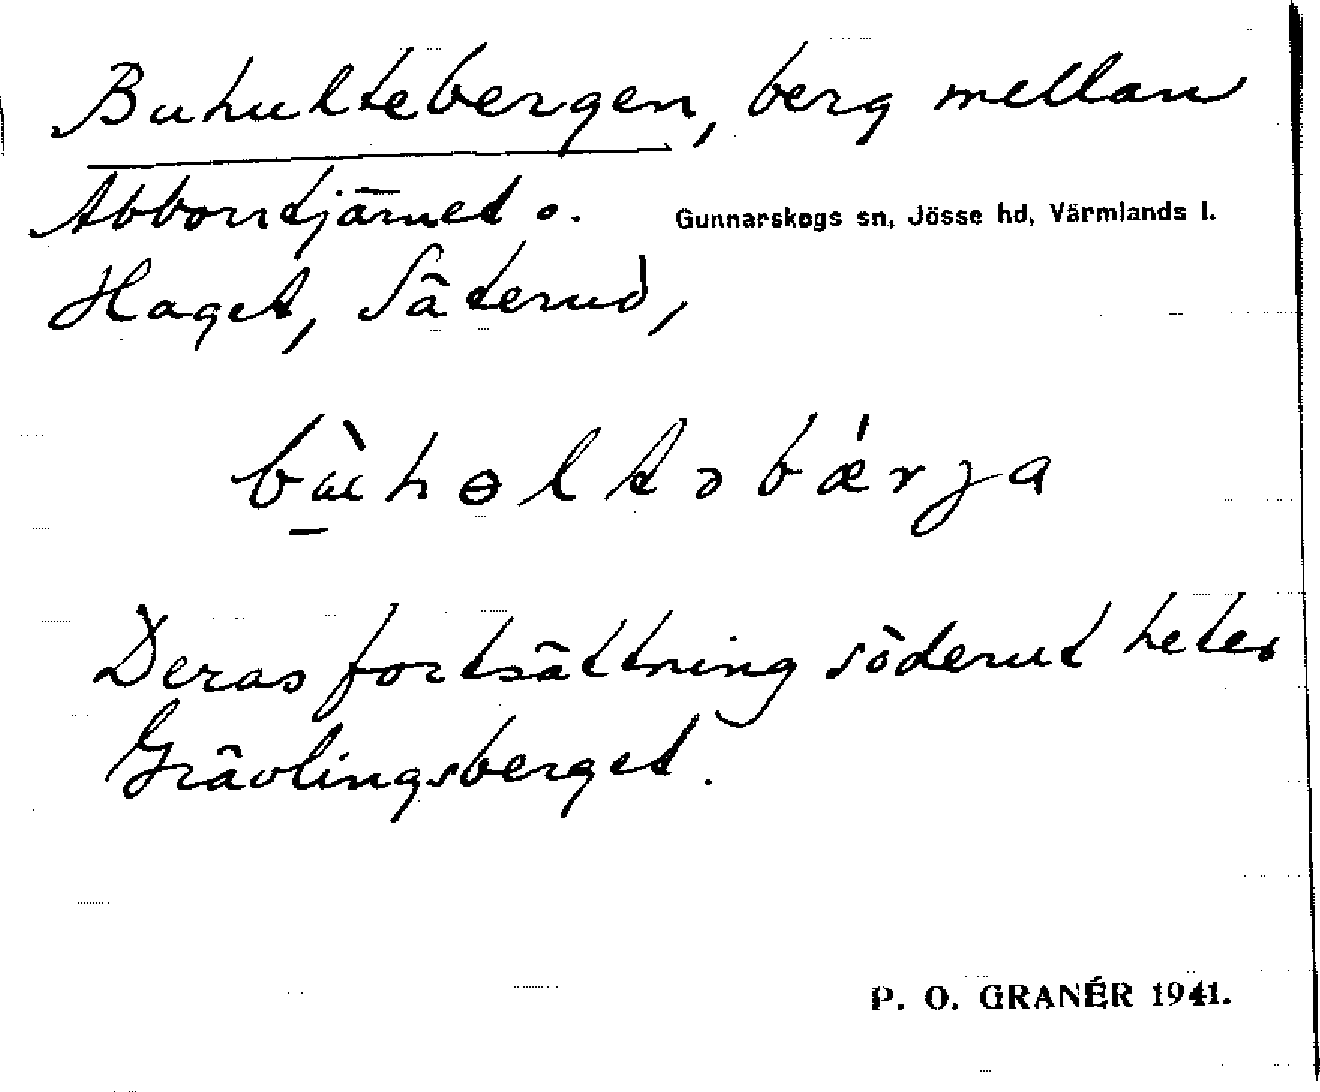 Buhultebergen, berg mellan
Abborrtjärnet o.
Gunnarskogs sn, Jösse hd, Värmlands l.
Haget, Säterud,
bù̱hɵltəbǽrja
Deras fortsättning söderut heter
Grävlingsberget.
P. O. GRANÉR 1941.